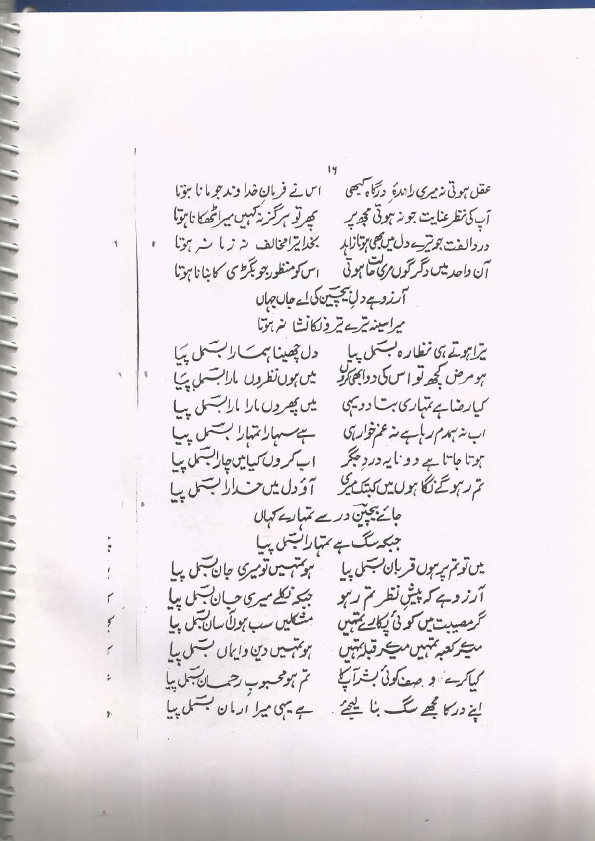 ۱۶
عقل ہوتی نہ میری راندۂ درگاہ کبھی اس نے فرمانِ خداوند جو مانا ہوتا
آپ کی نظرِ عنایت جو نہ ہوتی مجھ پر پھر تو ہرگز نہ کہیں میرا ٹھکانا ہوتا
درد الفت جو ترے دل میں بھی ہوتا زاہد بخدا تیرا مخالف نہ زمانہ ہوتا
آن واحد میں دگرگوں مری حالت ہوتی اس کو منظور جو بگڑی کا بنانا ہوتا
آرزو ہے دل بیچین کی اے جاں جہاں
میرا سینہ ترے تیروں کا نشانہ ہوتا
تیرا ہوتے ہی نظارہ بسمل پیا دل چھینا ہمارا بسمل پیا
ہو مرض کچھ تو اس کی دوا بھی کروں میں ہوں نظروں مارا بسمل پیا
کیا رضا ہے تمہاری بتا دو یہی میں پھروں مارا مارا بسمل پیا
اب نہ ہمدم رہا ہے نہ غم خوار ہی ہے سہارا تمہارا بسمل پیا
ہوتا جاتا ہے دونا یہ دردِ جگر اب کروں کیا میں چارا بسمل پیا
تم رہو گے نگاہوں میں کبتک میری آؤ دل میں خدارا بسمل پیا
جائے بیچین در سے تمہارے کہاں
جبکہ سگ ہے تمہارا بسمل پیا
میں تو تم پر ہوں قربان بسمل پیا ہو تمہیں تو میری جان بسمل پیا
آرزو ہے کہ پیشِ نظر تم رہو جبکہ نکلے میری جان بسمل پیا
گر مصیبت میں کوئی پکارے تمہیں مشکلیں سب ہوں آساں بسمل پیا
میرے کعبہ تمہیں میرے قبلہ تمہیں ہو تمہیں دین و ایماں بسمل پیا
کیا کرے وصف کوئی بشر آپ کا تم ہو محبوبِ رحمان بسمل پیا
اپنے در کا مجھے سگ بنا لیجئے ہے یہی میرا ارمان بسمل پیا